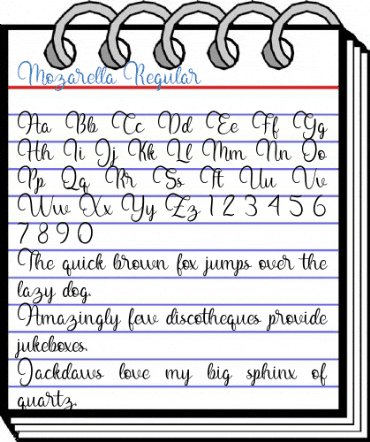 Mozarella Regular
Aa Bb Cc Dd Ee Ff Gg
Hh Ii Jj Kk Ll Mm Nn Oo
Pp Qq Rr Ss Tt Uu Vv
Ww Xx Yy Zz 1 2 3 4 5 6
7 8 9 0
The quick brown fox jumps over the
lazy dog.
Amazingly few discotheques provide
jukeboxes.
Jackdaws love my big sphinx of
quartz.